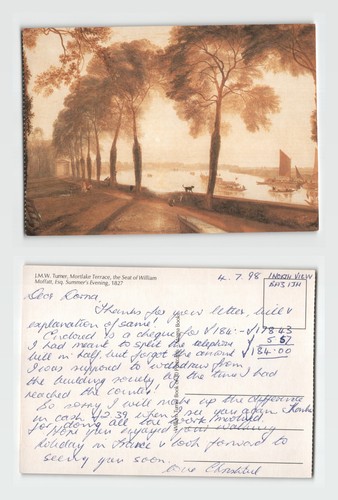 J.M.W. Turner, Mortlake Terrace, the Seat of William
Moffatt, Esq. Summer's Evening, 1827
4.7.98
NORTH VIEW
BH3 1JH
Dear
Thanks for your letter, bill &
explanation of same!
Enclosed is a cheque for £184.- £178.43
I had meant to split the telephone 5.57
bill in half, but forgot the amount £184.00
I was supposed to withdraw from
the building society by the time I had
reached the counter!
So sorry. I will make up the difference
in cash £2.39 when I see you again. Thanks
for doing all the work involved
Hope you enjoyed your walking
holiday in France & look forward to
seeing you soon.
love